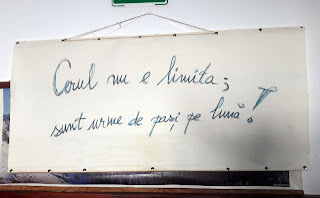 Cerul nu e limita;
sunt urme de pași pe lună!